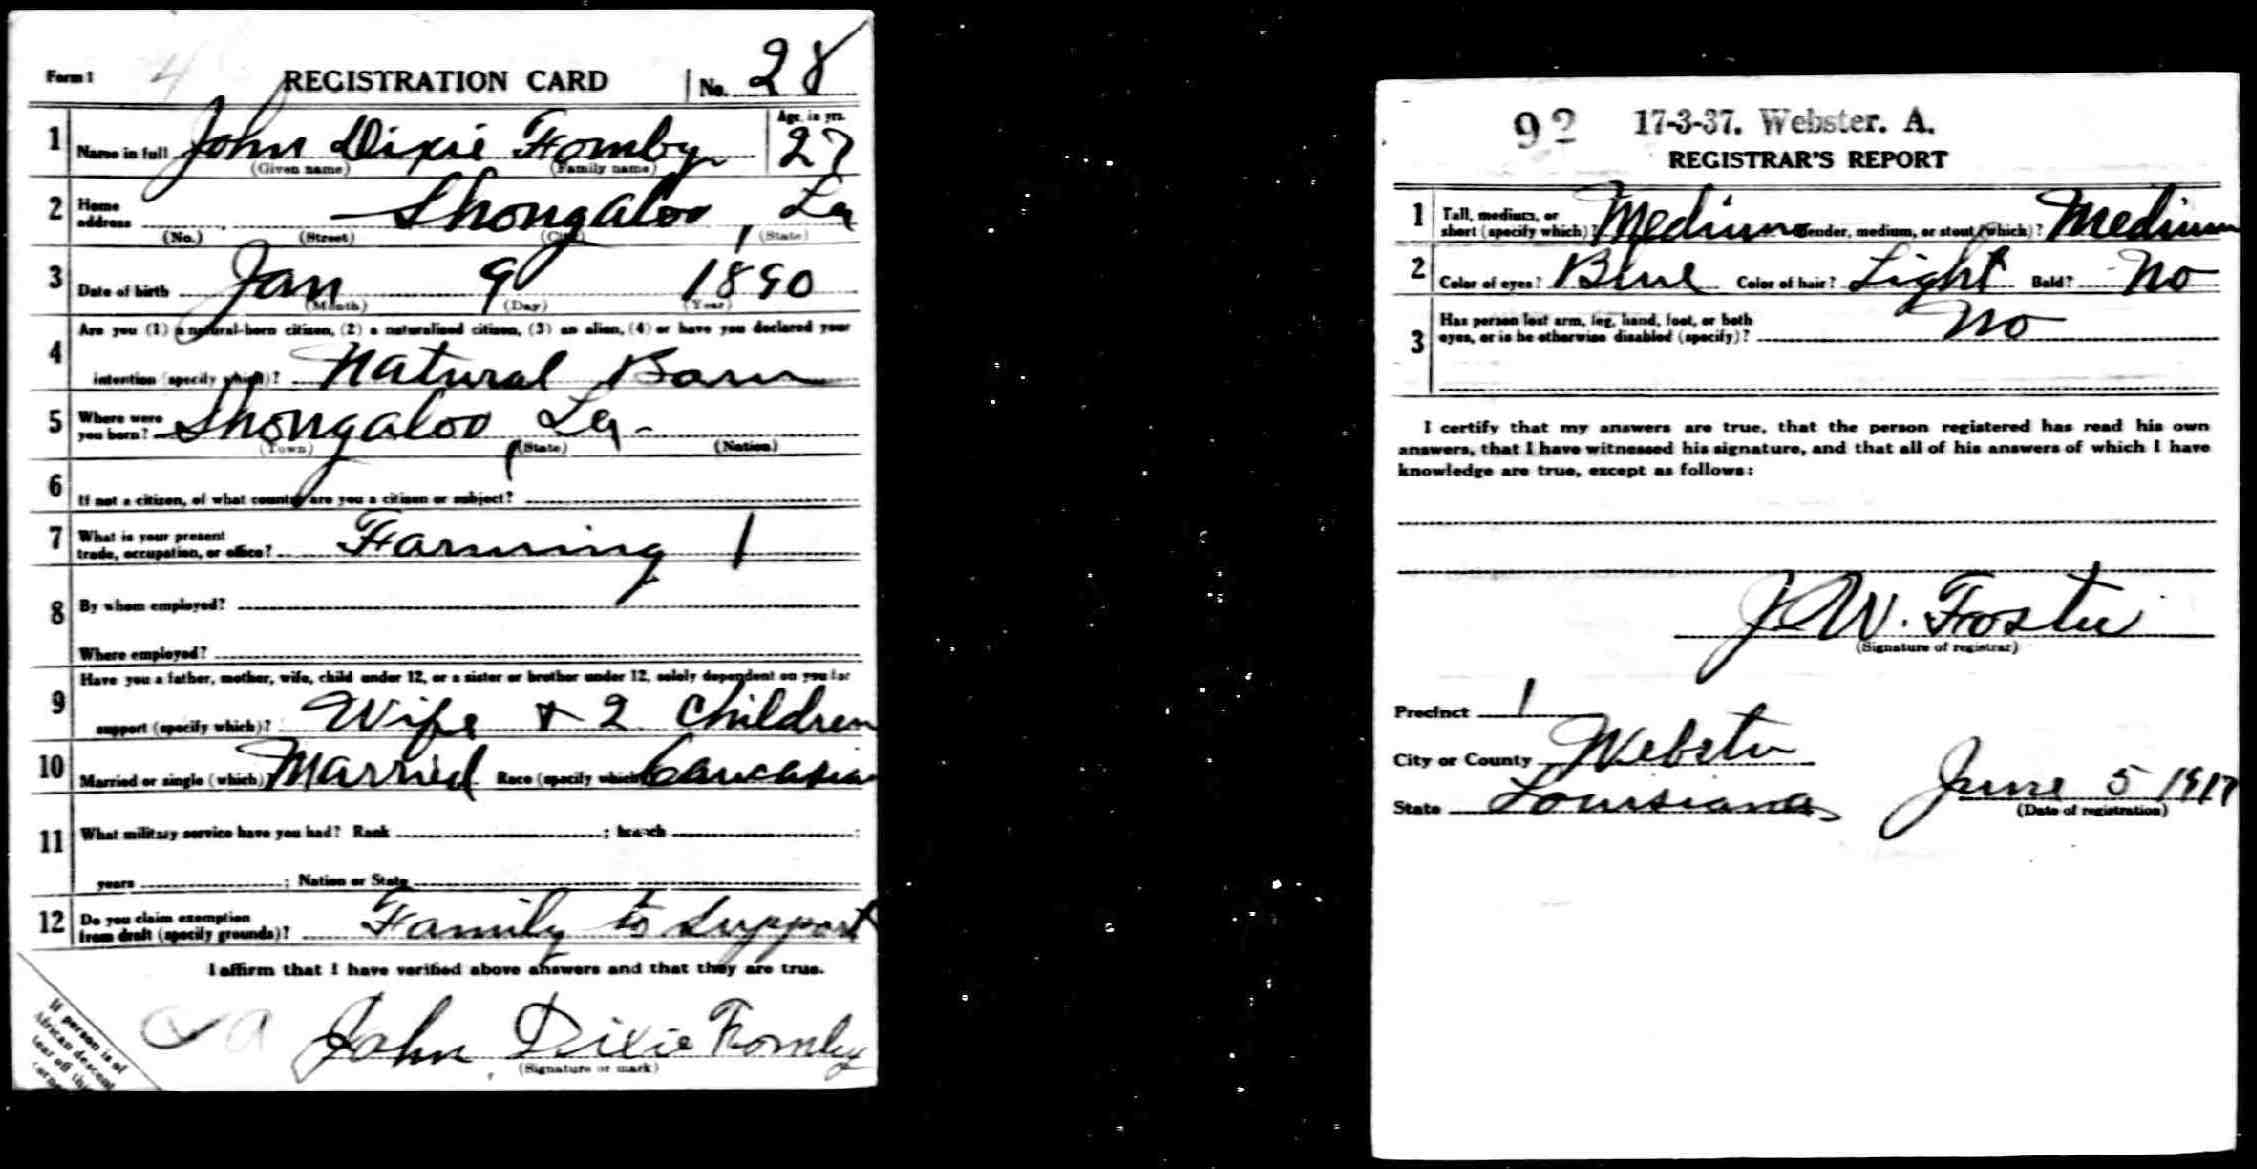 Form 1 4 REGISTRATION CARD No. 28
1 Name in full John Dixie Fomby Age, in yrs. 27
(Given name) (Family name)
2 Home address Shongaloo, La
(No.) (Street) (City) (State)
3 Date of birth Jan 9 1890
(Month) (Day) (Year)
4 Are you (1) a natural-born citizen, (2) a naturalized citizen, (3) an alien, (4) or have you declared your
intention (specify which)? Natural Born
5 Where were you born? Shongaloo, La.
(Town) (State) (Nation)
6 If not a citizen, of what country are you a citizen or subject?
7 What is your present trade, occupation, or office? Farming 1
8 By whom employed?
Where employed?
9 Have you a father, mother, wife, child under 12, or a sister or brother under 12, solely dependent on you for
support (specify which)? Wife + 2 Children
10 Married or single (which)? Married Race (specify which)? Caucasian
11 What military service have you had? Rank ; branch ;
years ; Nation or State
12 Do you claim exemption from draft (specify grounds)? Family to support
I affirm that I have verified above answers and that they are true.
John Dixie Fomby
(Signature or mark)
If person is of
African descent
tear off this
corner
92 17-3-37. Webster. A.
REGISTRAR'S REPORT
1 Tall, medium, or short (specify which)? Medium Slender, medium, or stout (which)? Medium
2 Color of eyes? Blue Color of hair? Light Bald? No
3 Has person lost arm, leg, hand, foot, or both eyes, or is he otherwise disabled (specify)? No
I certify that my answers are true, that the person registered has read his own
answers, that I have witnessed his signature, and that all of his answers of which I have
knowledge are true, except as follows:
J. W. Foster
(Signature of registrar)
Precinct 1
City or County Webster
State Louisiana June 5 1917
(Date of registration)